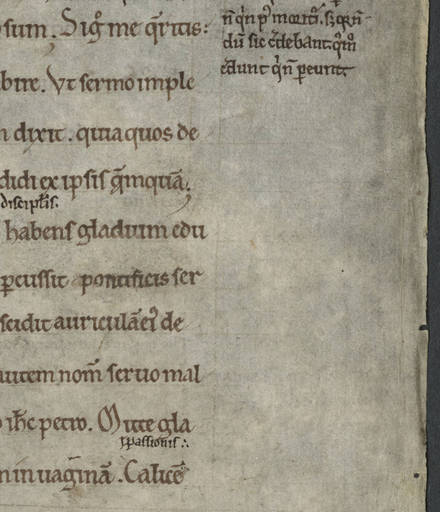 sum. Sigͦ me q̄ritis:
bire. Vt sermo imple
n dixit. quia quos de
didi ex ipsis q̄mquā.
discipl̄s.
habens gladium edu
ꝑcussit pontificis ser
scidit auriculā ei᷒ de
utem nom̄ seruo mal
ih̄c petro. Mitte gla
.i. passionis ∴
n in uaginā. Calicē
dū sic c̄debant.
c̄dunt q̄n̄ ꝑeunt.